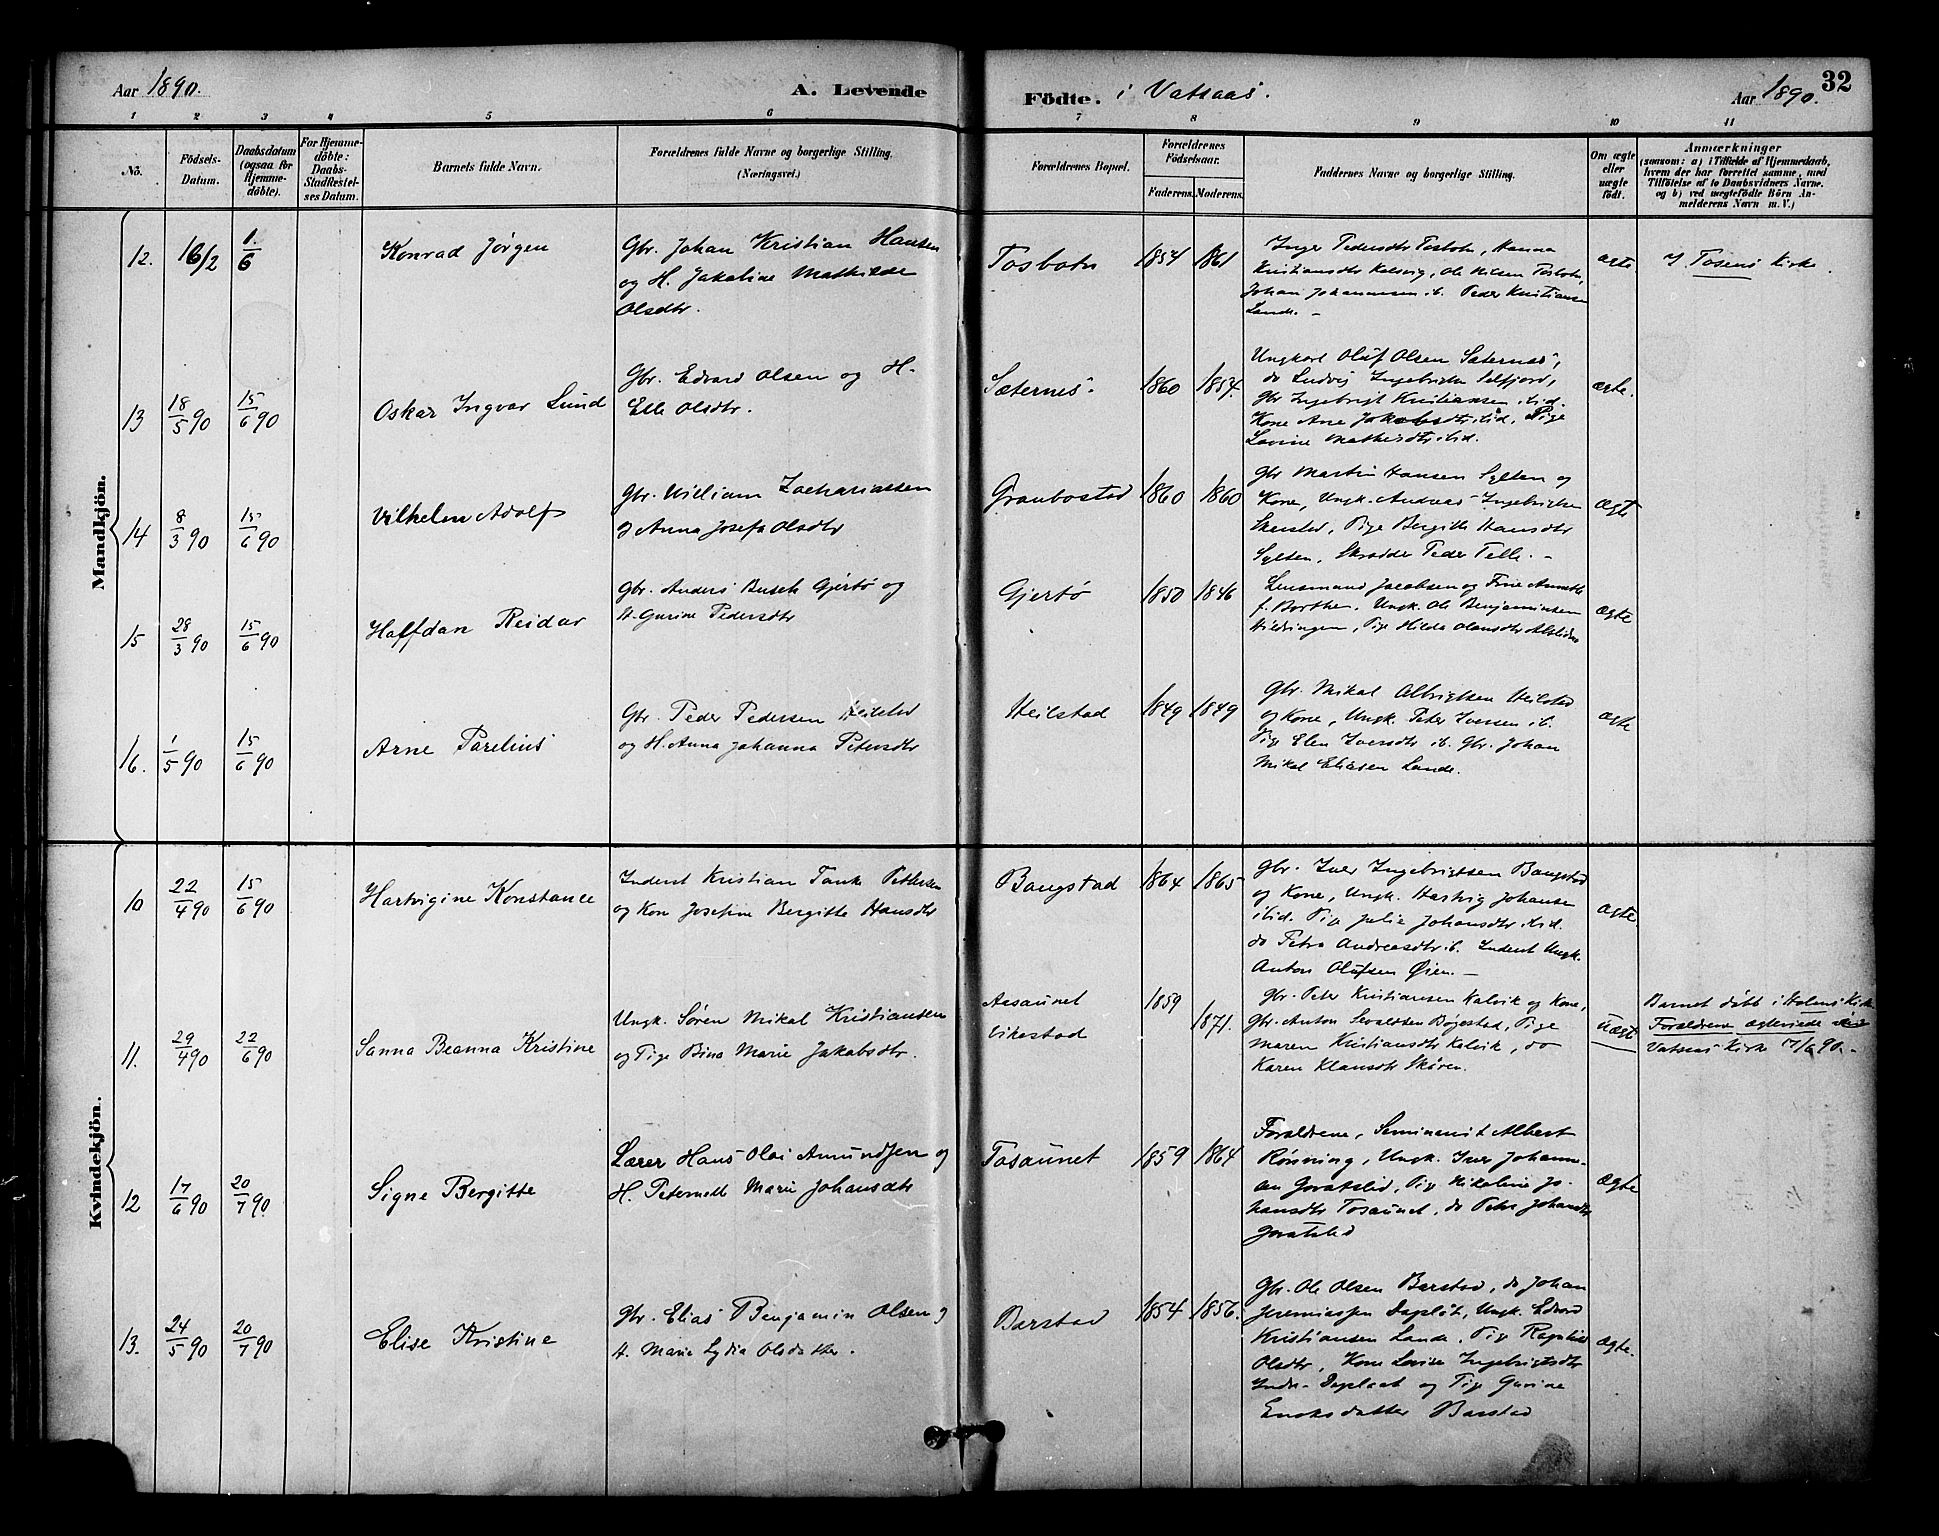 Aar 1890.
A. Levende
Födte. i Vatsaas.
Aar 1890.
32
1 2 3 4 5 6 7 8 9 10 11
No.
Födsels-
Datum.
Daabsdatum
(ogsaa for
Hjemme-
döbte).
For Hjemme-
döbte:
Daabs-
StadfæStel-
ses Datum.
Barnets fulde Navn.
Forældrenes fulde Navne og borgerlige Stilling.
(Næringsvei.)
Forældrenes Bopæl.
Forældrenes
Födselsaar.
Faderens. Moderens.
Faddernes Navne og borgerlige Stilling.
Om ægte
eller
uægte
födt.
Anmærkninger
(saasom: a) i Tilfælde af Hjemmedaab,
hvem der har forrettet samme, med
Tilföielse af to Daabsvidners Navne.
og b) ved uægtefödte Börn An-
melderens Navn m. V.)
Mandkjön.
12. 16/2 1./6
Konrad Jørgen
Gbr. Johan Kristian Hansen
og H. Jakobine Mathilde
Olsdtr.
Tosbotn 1854 1861
Inger Pedersdtr Tosbotn, Hanna
Kristiansdtr Kalvig, Ole Nilsen Tosbotn,
Johan Johannesen ib. Peder Kristiansen
Lande. -
ægte
I Tosens Kirke.
13 18/5 90 15/6 90
Oskar Ingvar Lund
Gbr. Edvard Olsen og H.
Elle Olsdtr.
Sæternes. 1860 1854.
Ungkarl Oluf Olsen Sæternes,
do Ludvig Ingebrigtsen
Gbr Ingebrigt Kristiansen ibid.
Kone Ane Jakobsdtr ibid, Pige
Lovine ibid.
ægte.
14 8/3 90 15/6 90
Vilhelm Adolf
Gbr. William Zachariassen
og Anna Josefa Olsdtr
Graabostad 1860 1860
Gbr Martin Hansen Sylten og
Kone, Ungk. Andreas Ingebrigtsen
Pige Bergitte Hansdtr
Sylten, Skrædder Peder Telle. -
ægte
15 28/3 90 15/6 90
Halfdan Reidar
Gbr. Anders Busch Gjertø og
H. Gurine Pedersdtr
Gjertø 1850 1846
Lensmand Jacobsen og Frue Annette
f. Borthen. Ungk. Ole Benjaminsen
Hildringen, Pige Hilda Olausdtr
ægte
16. 1/5 90 15/6 90
Arne Parelius
Gbr. Peder Pedersen Heilstad
og H. Anna Johanna Petersdtr
Heilstad 1849 1849
Gbr. Mikal Albrigtsen Heilstad
og Kone, Ungk. Peter Iversen ib.
Pige Elen Iversdtr ib. Gbr. Johan
Mikal Eliasen Lande.
ægte
Kvindekjön.
10 22/4 90 15/6 90
Hartvigine Konstance
Inderst Kristian Tank Pettersen
og Kone Josefine Bergitte Hansdtr
Bangstad 1864 1865
Gbr. Iver Ingebrigtsen Bangstad
og Kone, Ungk. Hartvig Johansen
ibid. Pige Julie Johansdtr ibid.
do Petra Andreasdtr ib. Inderst Ungk.
Anton Olufsen Øien. -
ægte
11. 29/4 90 22/6 90
Sanna Beanna Kristine
Ungk. Søren Mikal Kristiansen
og Pige Bina Marie Jakobsdtr.
Aasaunet
Vikestad
1859
1871.
Gbr. Peter Kristiansen Kalvik og Kone,
Gbr. Anton Sevaldsen Bøgestad, Pige
Maren Kristiansdtr Kalvik, do
Karen Klausdtr Skåren.
Uægte
Barnet døbt i Holens Kirke
Forældrene ægteviede
Vatsaas Kirke 7/6 90. -
12 17/6 90 20/7 90
Signe Bergitte
Lærer Hans Olai Amundsen og
H. Peternelle Marie Johansdtr
Tosaunet 1859 1864
Forældrene, Seminarist Albert
Rønning, Ungk. Iver Johann-
sen Gravatslid, Pige Nikoline Jo-
hansdtr Tosaunet, do Petra Johansdtr
ægte
13. 24/5 90 20/7 90
Elise Kristine
Gbr. Elias Benjamin Olsen og
H. Marie Lydia Olsdatter.
Barstad 1854 1856.
Gbr. Ole Olsen Barstad, do Johan
Jeremiassen Dapløt, Ungk. Edvard
Kristiansen Lande, Pige
Olsdtr, Kone Lovise Ingebrigtsdtr
Indr. Daplaat og Pige Gurine
Enoksdatter Barstad
ægte.